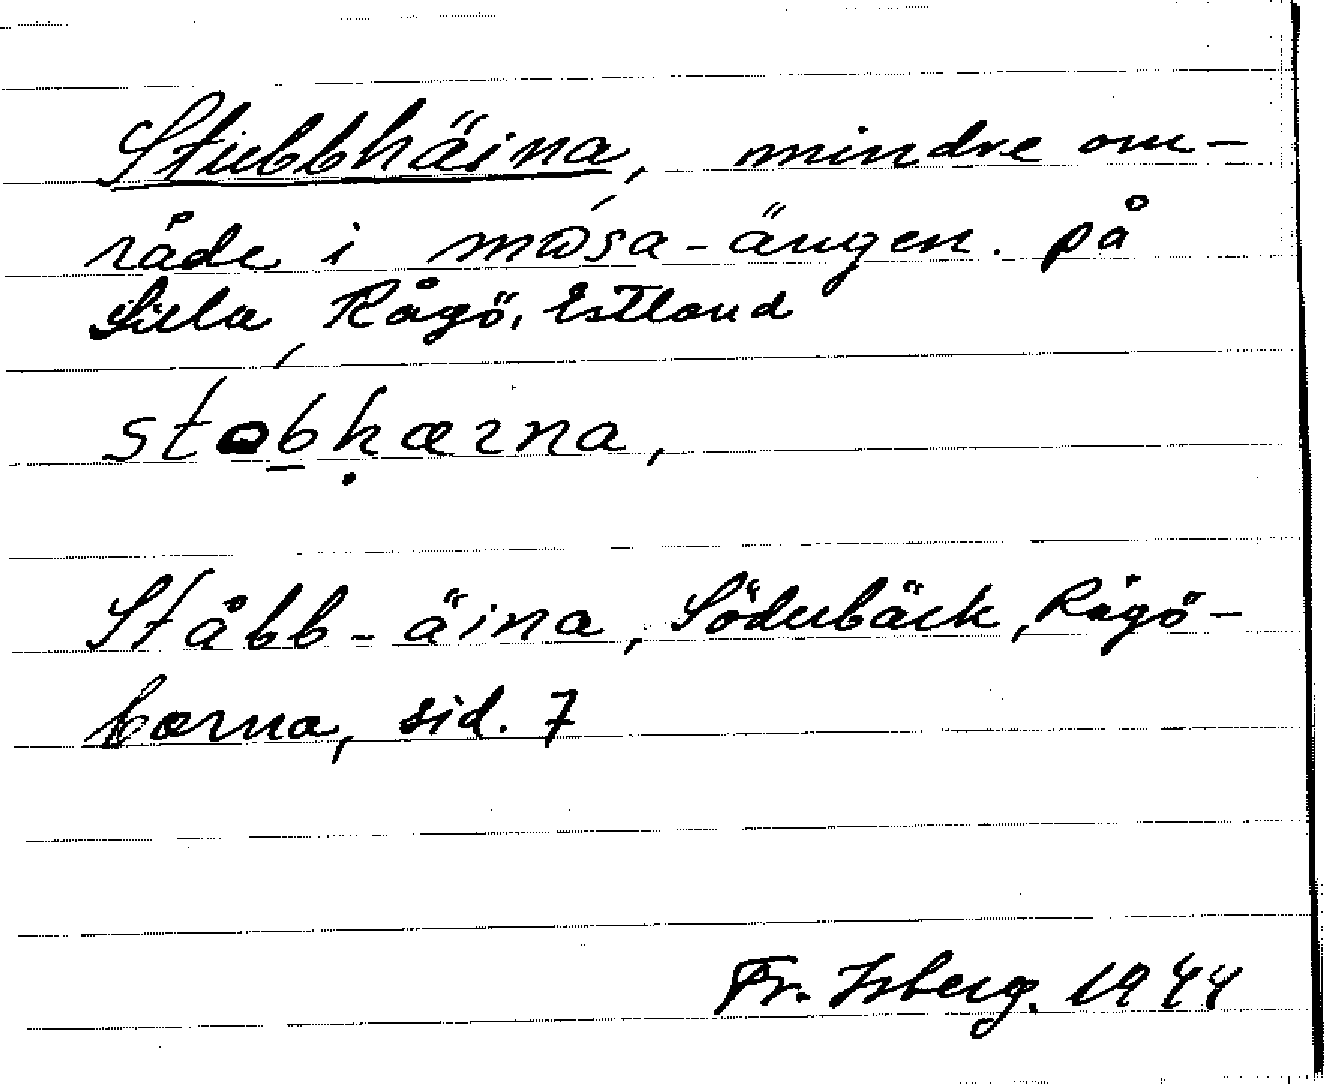 Stubbhäina, mindre om-
råde i måsa-ängen. på
Lilla Rågö, Estland
stobhærna,
Ståbb-äina, Söderbäck, Rågö-
borna, sid. 7
Fr. Isberg. 1944